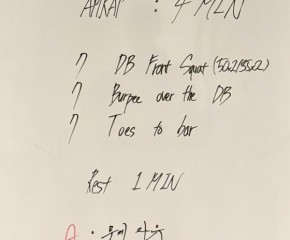 AMRAP : 4 MIN
7 DB Front Squat (50x2/35x2)
7 Burpee over the DB
7 Toes to bar
Rest 1 MIN
A :